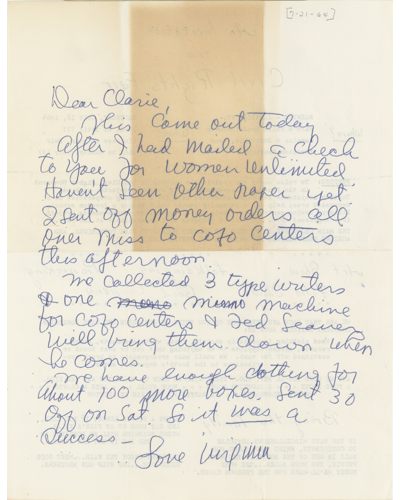 [7-21-64]
Dear Clarie,
This come out today
After I had mailed a check
to you for Women Unlimited
Haven't seen other paper yet
I sent off money orders all
over Miss to COFO Centers
this afternoon
We collected 3 type writers
& one mimo machine
for COFO centers & Ted Seaver
will bring them down when
he comes.
We have enough clothing for
about 100 more boxes. Sent 30
off on Sat. So it was a
success—
Love Virginia